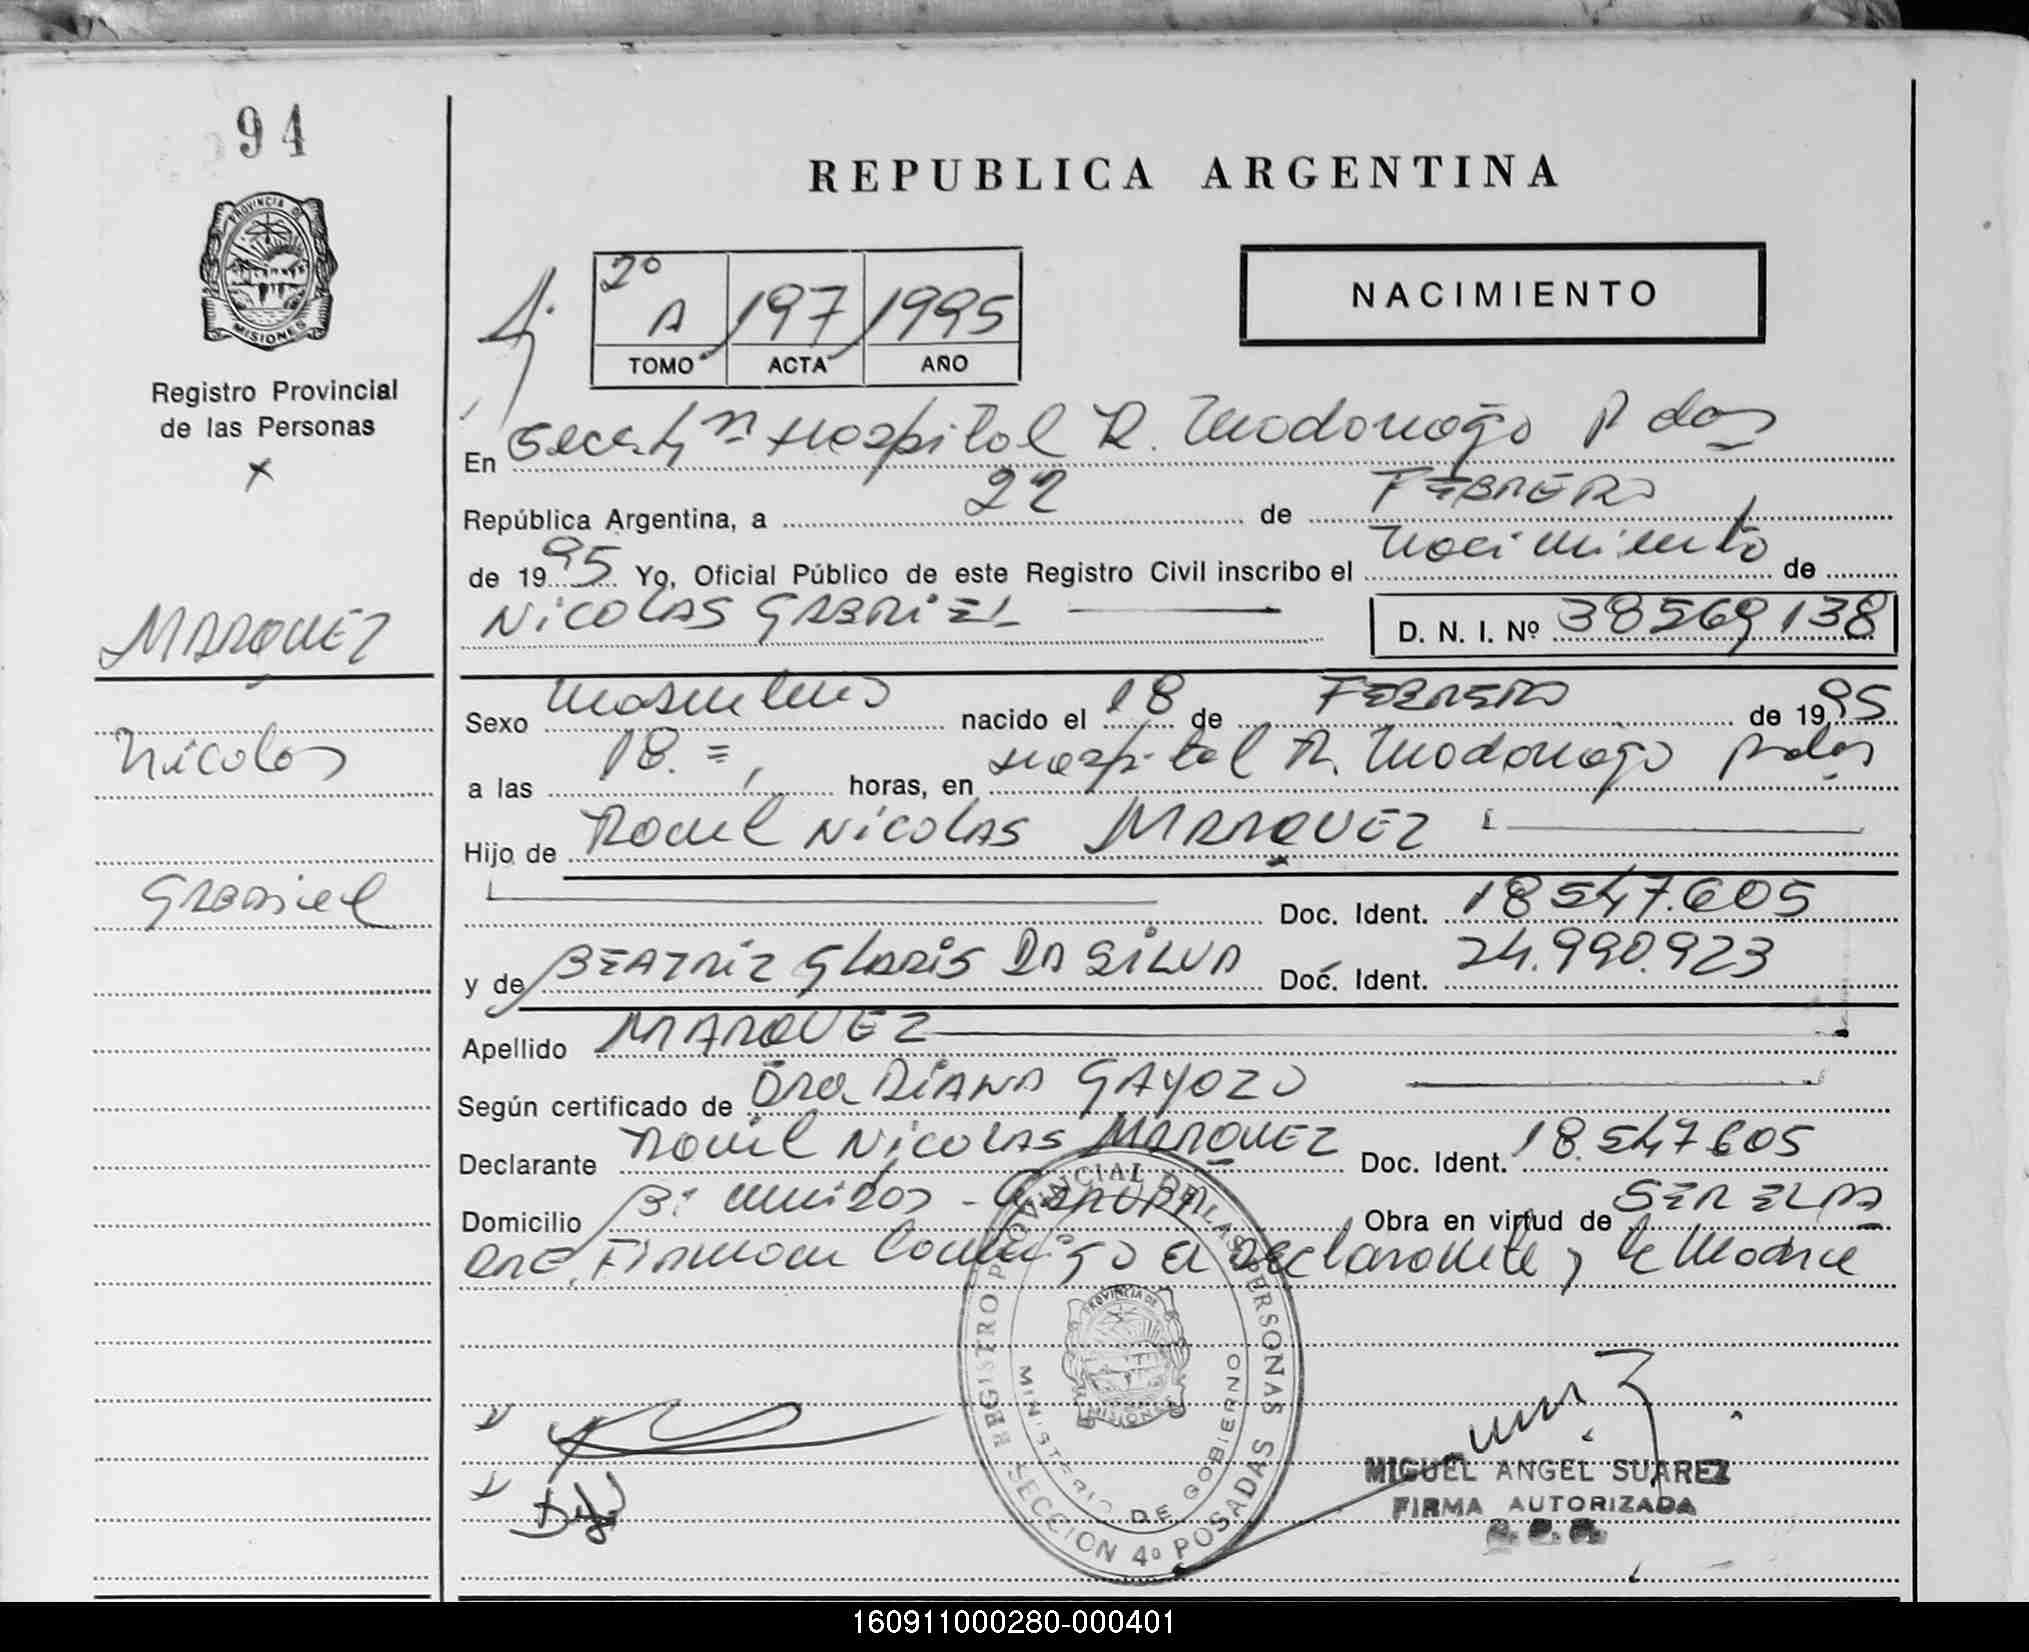 94
PROVINCIA DE
MISIONES
Registro Provincial
de las Personas
x
MARQUEZ
Nicolas
Gabriel
REPUBLICA ARGENTINA
2º
A 197 1995
TOMO ACTA AÑO
NACIMIENTO
En Secc. 4ta Hospital R. Madariaga Pdas
República Argentina, a 22 de FEBRERO
de 1995 Yo, Oficial Público de este Registro Civil inscribo el Nacimiento de
NICOLAS GABRIEL D. N. I. Nº 38569138
Sexo Masculino nacido el 18 de FEBRERO de 1995
a las 18.= horas, en Hospital R. Madariaga Pdas
Hijo de Raul NICOLAS MARQUEZ
Doc. Ident. 18547.605
y de BEATRIZ GLADIS DA SILVA Doc. Ident. 24.990.923
Apellido MARQUEZ
Según certificado de Dra DIANA GAYOZO
Declarante Raul NICOLAS MARQUEZ Doc. Ident. 18.547605
Domicilio Bº Unidos - GARUPA Obra en virtud de SER EL PA
DRE, Firman Conmigo el Declarante y la Madre
REGISTRO PROVINCIAL DE LAS PERSONAS
MINISTERIO DE GOBIERNO
PROVINCIA DE
MISIONES
SECCION 4º POSADAS
MIGUEL ANGEL SUAREZ
FIRMA AUTORIZADA
160911000280-000401